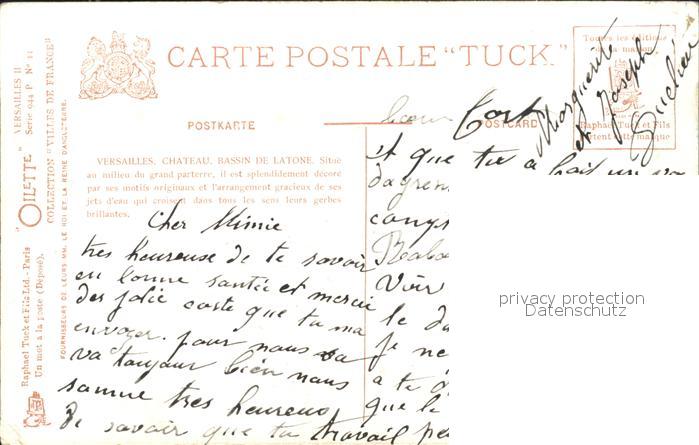 CARTE POSTALE "TUCK."
Toutes les éditions
de la maison
Raphael Tuck et Fils
portent cette marque
Marguerite
et Joseph
POSTKARTE
POSTCARD
VERSAILLES. CHATEAU, BASSIN DE LATONE. Situé
au milieu du grand parterre, il est splendidement décoré
par ses motifs originaux et l'arrangement gracieux de ses
jets d'eau qui croisent dans tous les sens leurs gerbes
brillantes.
Cher Mimie
tres heureuse de te savoir
en bonne santée et merci
des jolie carte que tu ma
envoyer. pour nous va
va toujour bien nous
somme tres heureus
de savoir que tu travail
et que tu a fait un
Voir
le
je ne
a te
que le
"OILETTE" VERSAILLES II
Serie 944 P N° 11
COLLECTION "VILLES DE FRANCE"
Raphael Tuck et Fils Ltd. - Paris
Un mot à la poste (Déposé).
FOURNISSEURS DE LEURS MM. LE ROI ET LA REINE D'ANGLETERRE.
privacy protection
Datenschutz